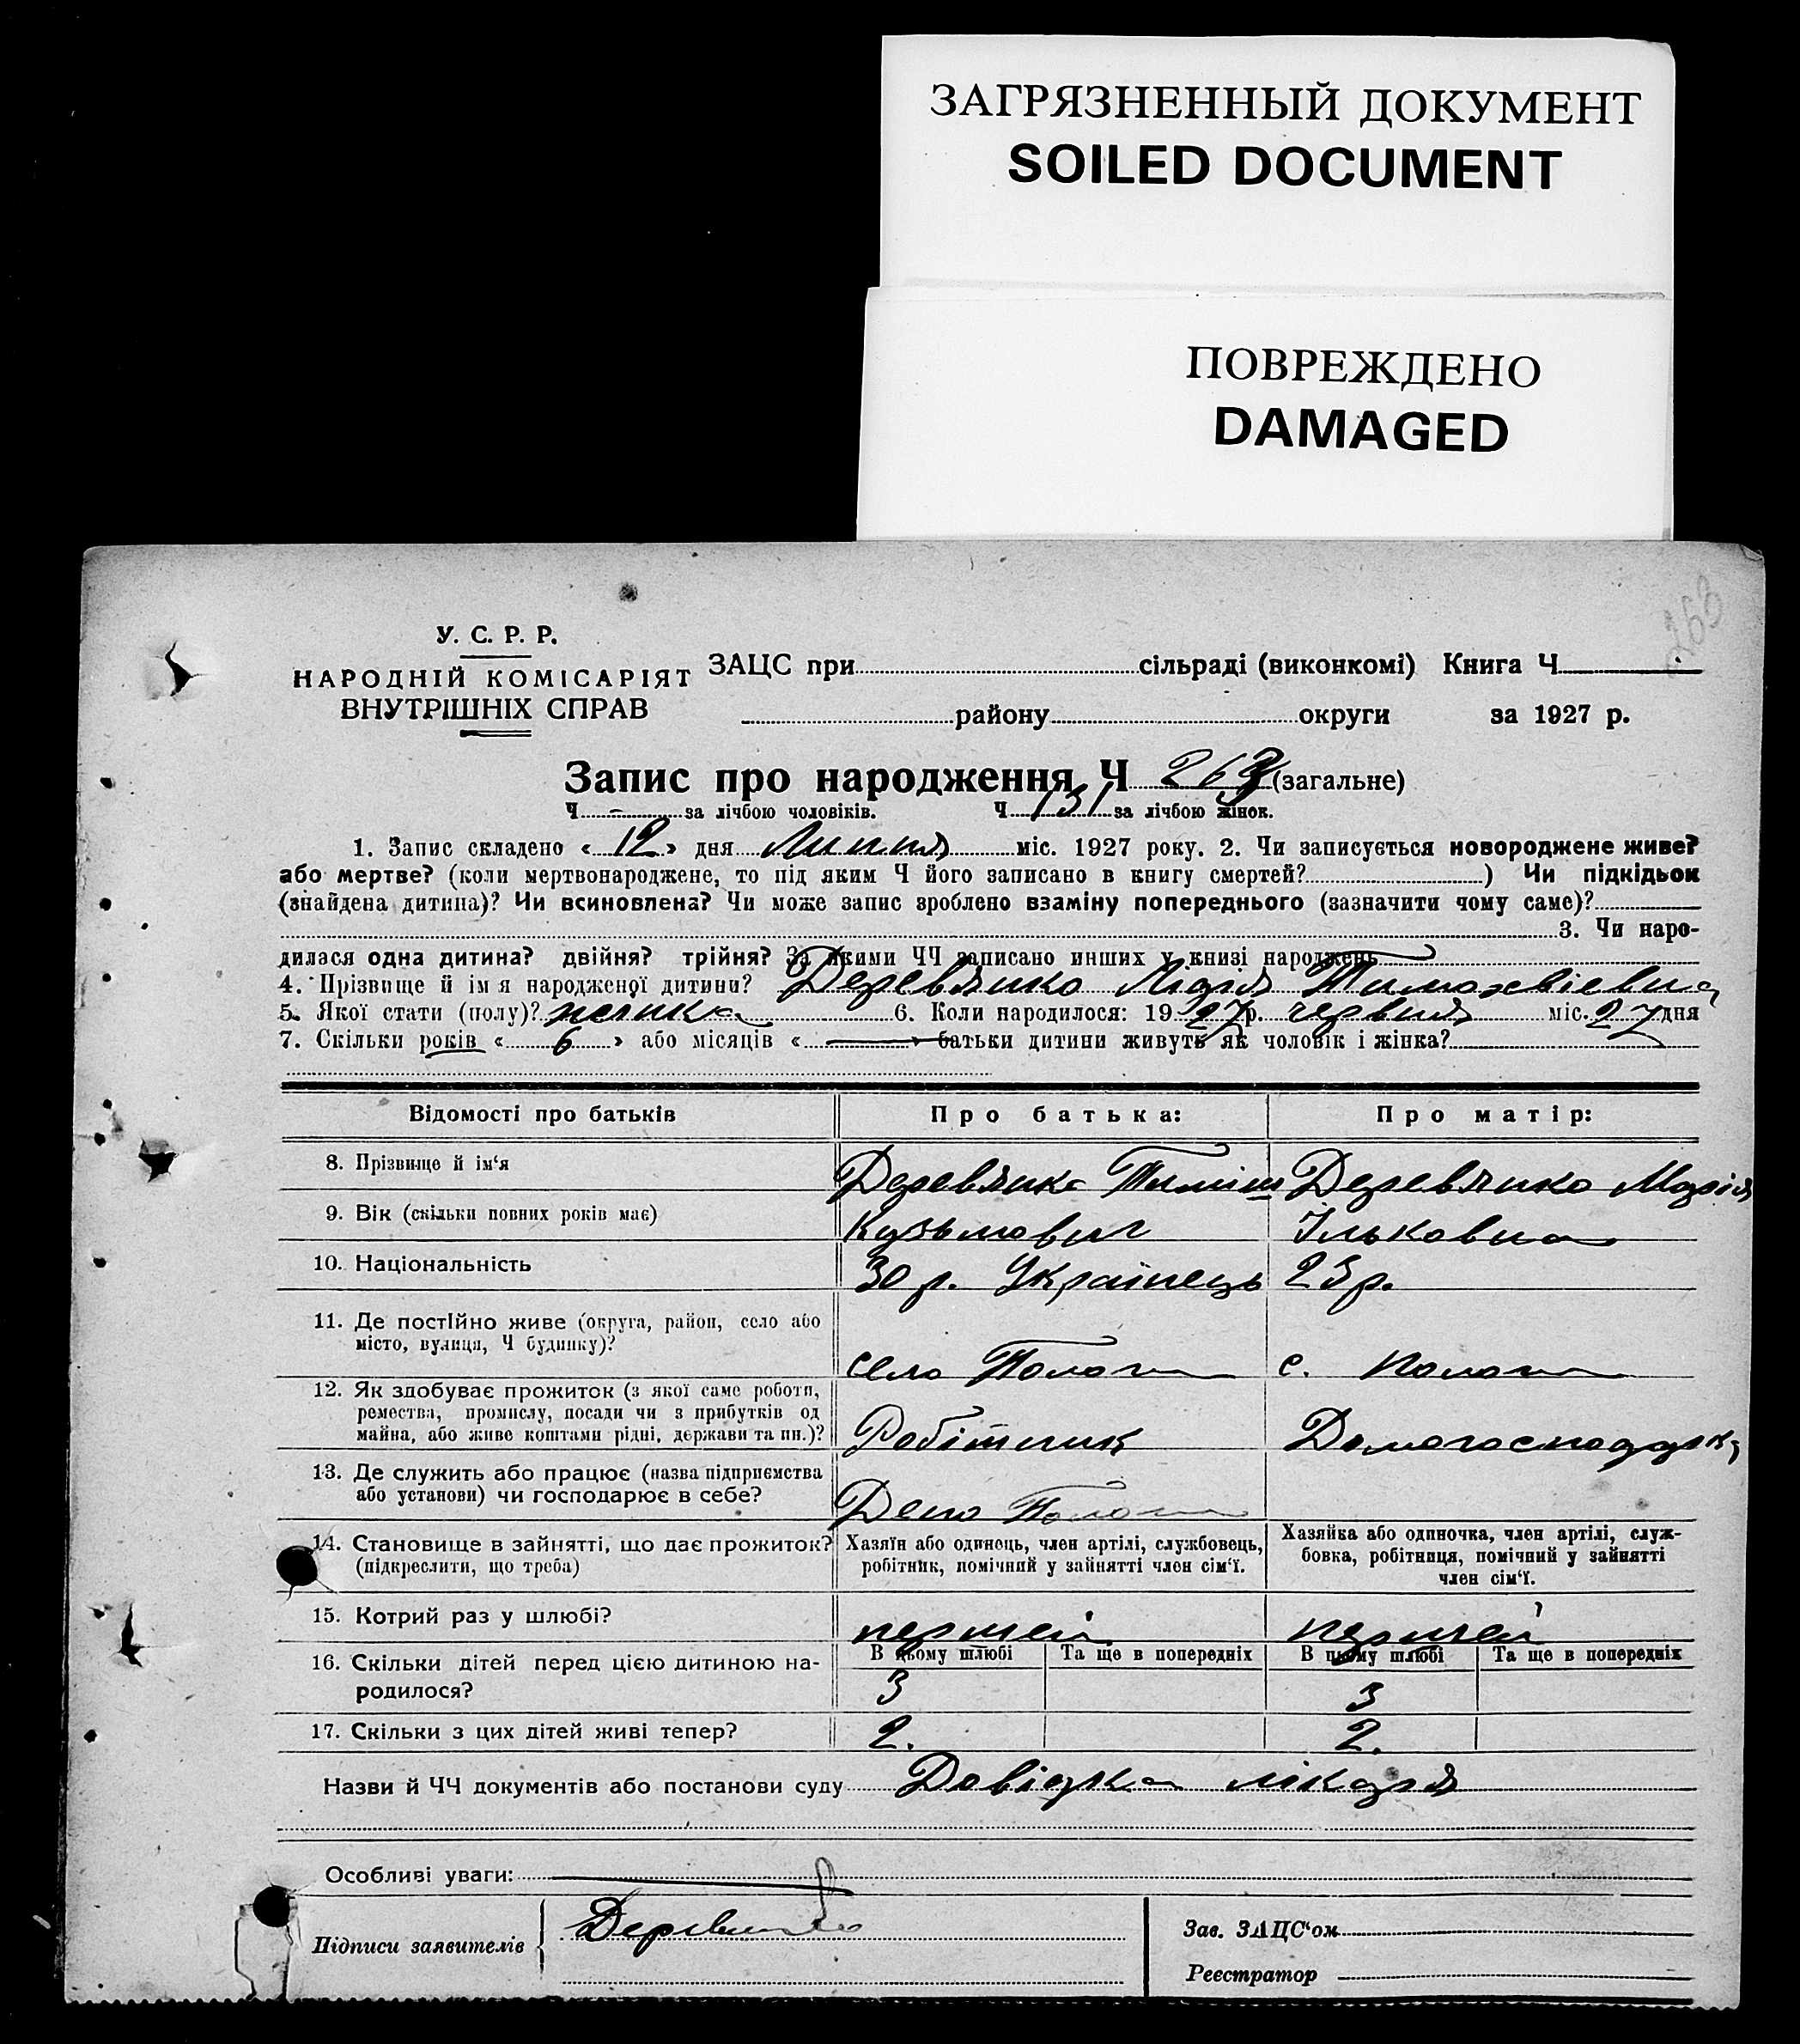 ЗАГРЯЗНЕННЫЙ ДОКУМЕНТ
SOILED DOCUMENT
ПОВРЕЖДЕНО
DAMAGED
263
У. С. Р. Р.
НАРОДНІЙ КОМІСАРІЯТ
ВНУТРІШНІХ СПРАВ
ЗАЦС при сільраді (виконкомі) Книга Ч
району округи за 1927 р.
Запис про народження Ч 263 (загальне)
Ч - за лічбою чоловіків. Ч 131 за лічбою жінок.
1. Запис складено « 12 » дня Липня міс. 1927 року. 2. Чи записується новороджене живе?
або мертве? (коли мертвонароджене, то під яким Ч його записано в книгу смертей? ) Чи підкідьок
(знайдена дитина)? Чи всиновлена? Чи може запис зроблено взаміну попереднього (зазначити чому саме)?
3. Чи наро-
дилася одна дитина? двійня? трійня? За якими ЧЧ записано инших у книзі народжень
4. Прізвище й імя народженої дитини? Деревянко Лідія Тимохвієвна
5. Якої стати (полу)? жінка 6. Коли народилося: 1927 р. червня міс. 27 дня
7. Скільки років « 6 » або місяців « — » батьки дитини живуть як чоловік і жінка?
Відомості про батьків Про батька: Про матір:
8. Прізвище й ім‘я Деревянко Тиміш Деревянко Марія
9. Вік (скільки повних років має) Кузьмович Ільковна
10. Національність 30 р. Українець 23 р.
11. Де постійно живе (округа, район, село або
місто, вулиця, Ч будинку)? село Пологи с. Пологи
12. Як здобуває прожиток (з якої саме роботи,
ремества, промислу, посади чи з прибутків од
майна, або живе коштами рідні, держави та ин.)? Робітник Домогосподарка
13. Де служить або працює (назва підприємства
або установи) чи господарює в себе? Депо Пологи
14. Становище в зайнятті, що дає прожиток?
(підкреслити, що треба)
Хазяїн або одинець, член артілі, службовець,
робітник, помічний у зайнятті член сім‘ї.
Хазяйка або одиночка, член артілі, служ-
бовка, робітниця, помічний у зайнятті
член сім‘ї.
15. Котрий раз у шлюбі? першей першей
16. Скільки дітей перед цією дитиною на-
родилося?
В цьому шлюбі Та ще в попередніх В цьому шлюбі Та ще в попередніх
3 3
17. Скільки з цих дітей живі тепер? 2. 2.
Назви й ЧЧ документів або постанови суду Довідка лікаря
Особливі уваги:
Підписи заявителів Деревянко
Зав. ЗАЦС‘ом
Реєстратор